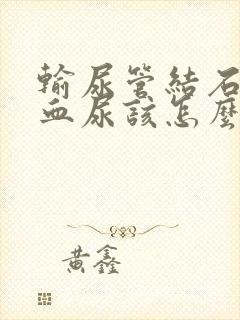 輸尿管結石
血尿該怎麼
黄鑫